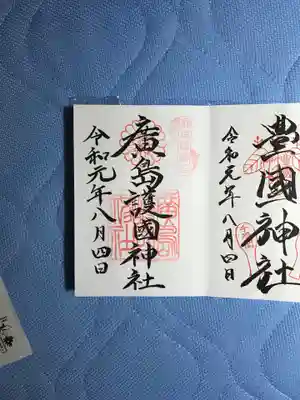 豊國神社
令和元年八月四日
廣島護國神社
令和元年八月四日